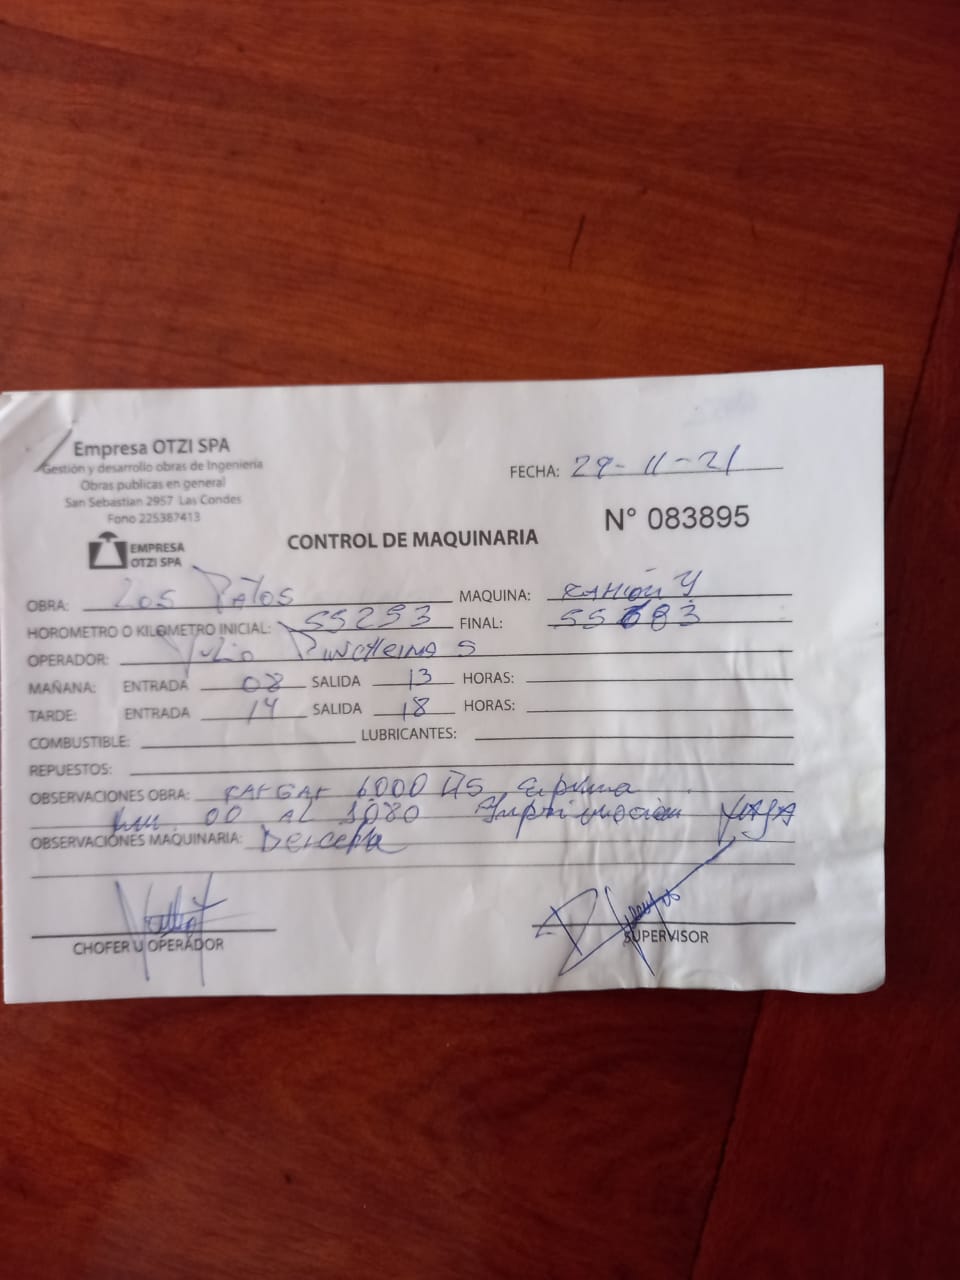 Empresa OTZI SPA
Gestión y desarrollo obras de Ingeniería
Obras publicas en general
San Sebastian 2957 Las Condes
Fono 225387413
EMPRESA
OTZI SPA
FECHA: 29-11-21
N° 083895
CONTROL DE MAQUINARIA
OBRA: Los Patos MAQUINA:
HOROMETRO O KILOMETRO INICIAL: 55293 FINAL:
OPERADOR: Julio S
MAÑANA: ENTRADA 08 SALIDA 13 HORAS:
TARDE: ENTRADA 14 SALIDA 18 HORAS:
COMBUSTIBLE: LUBRICANTES:
REPUESTOS:
OBSERVACIONES OBRA: 6000
00 AL 1080
OBSERVACIONES MAQUINARIA:
CHOFER U OPERADOR
SUPERVISOR